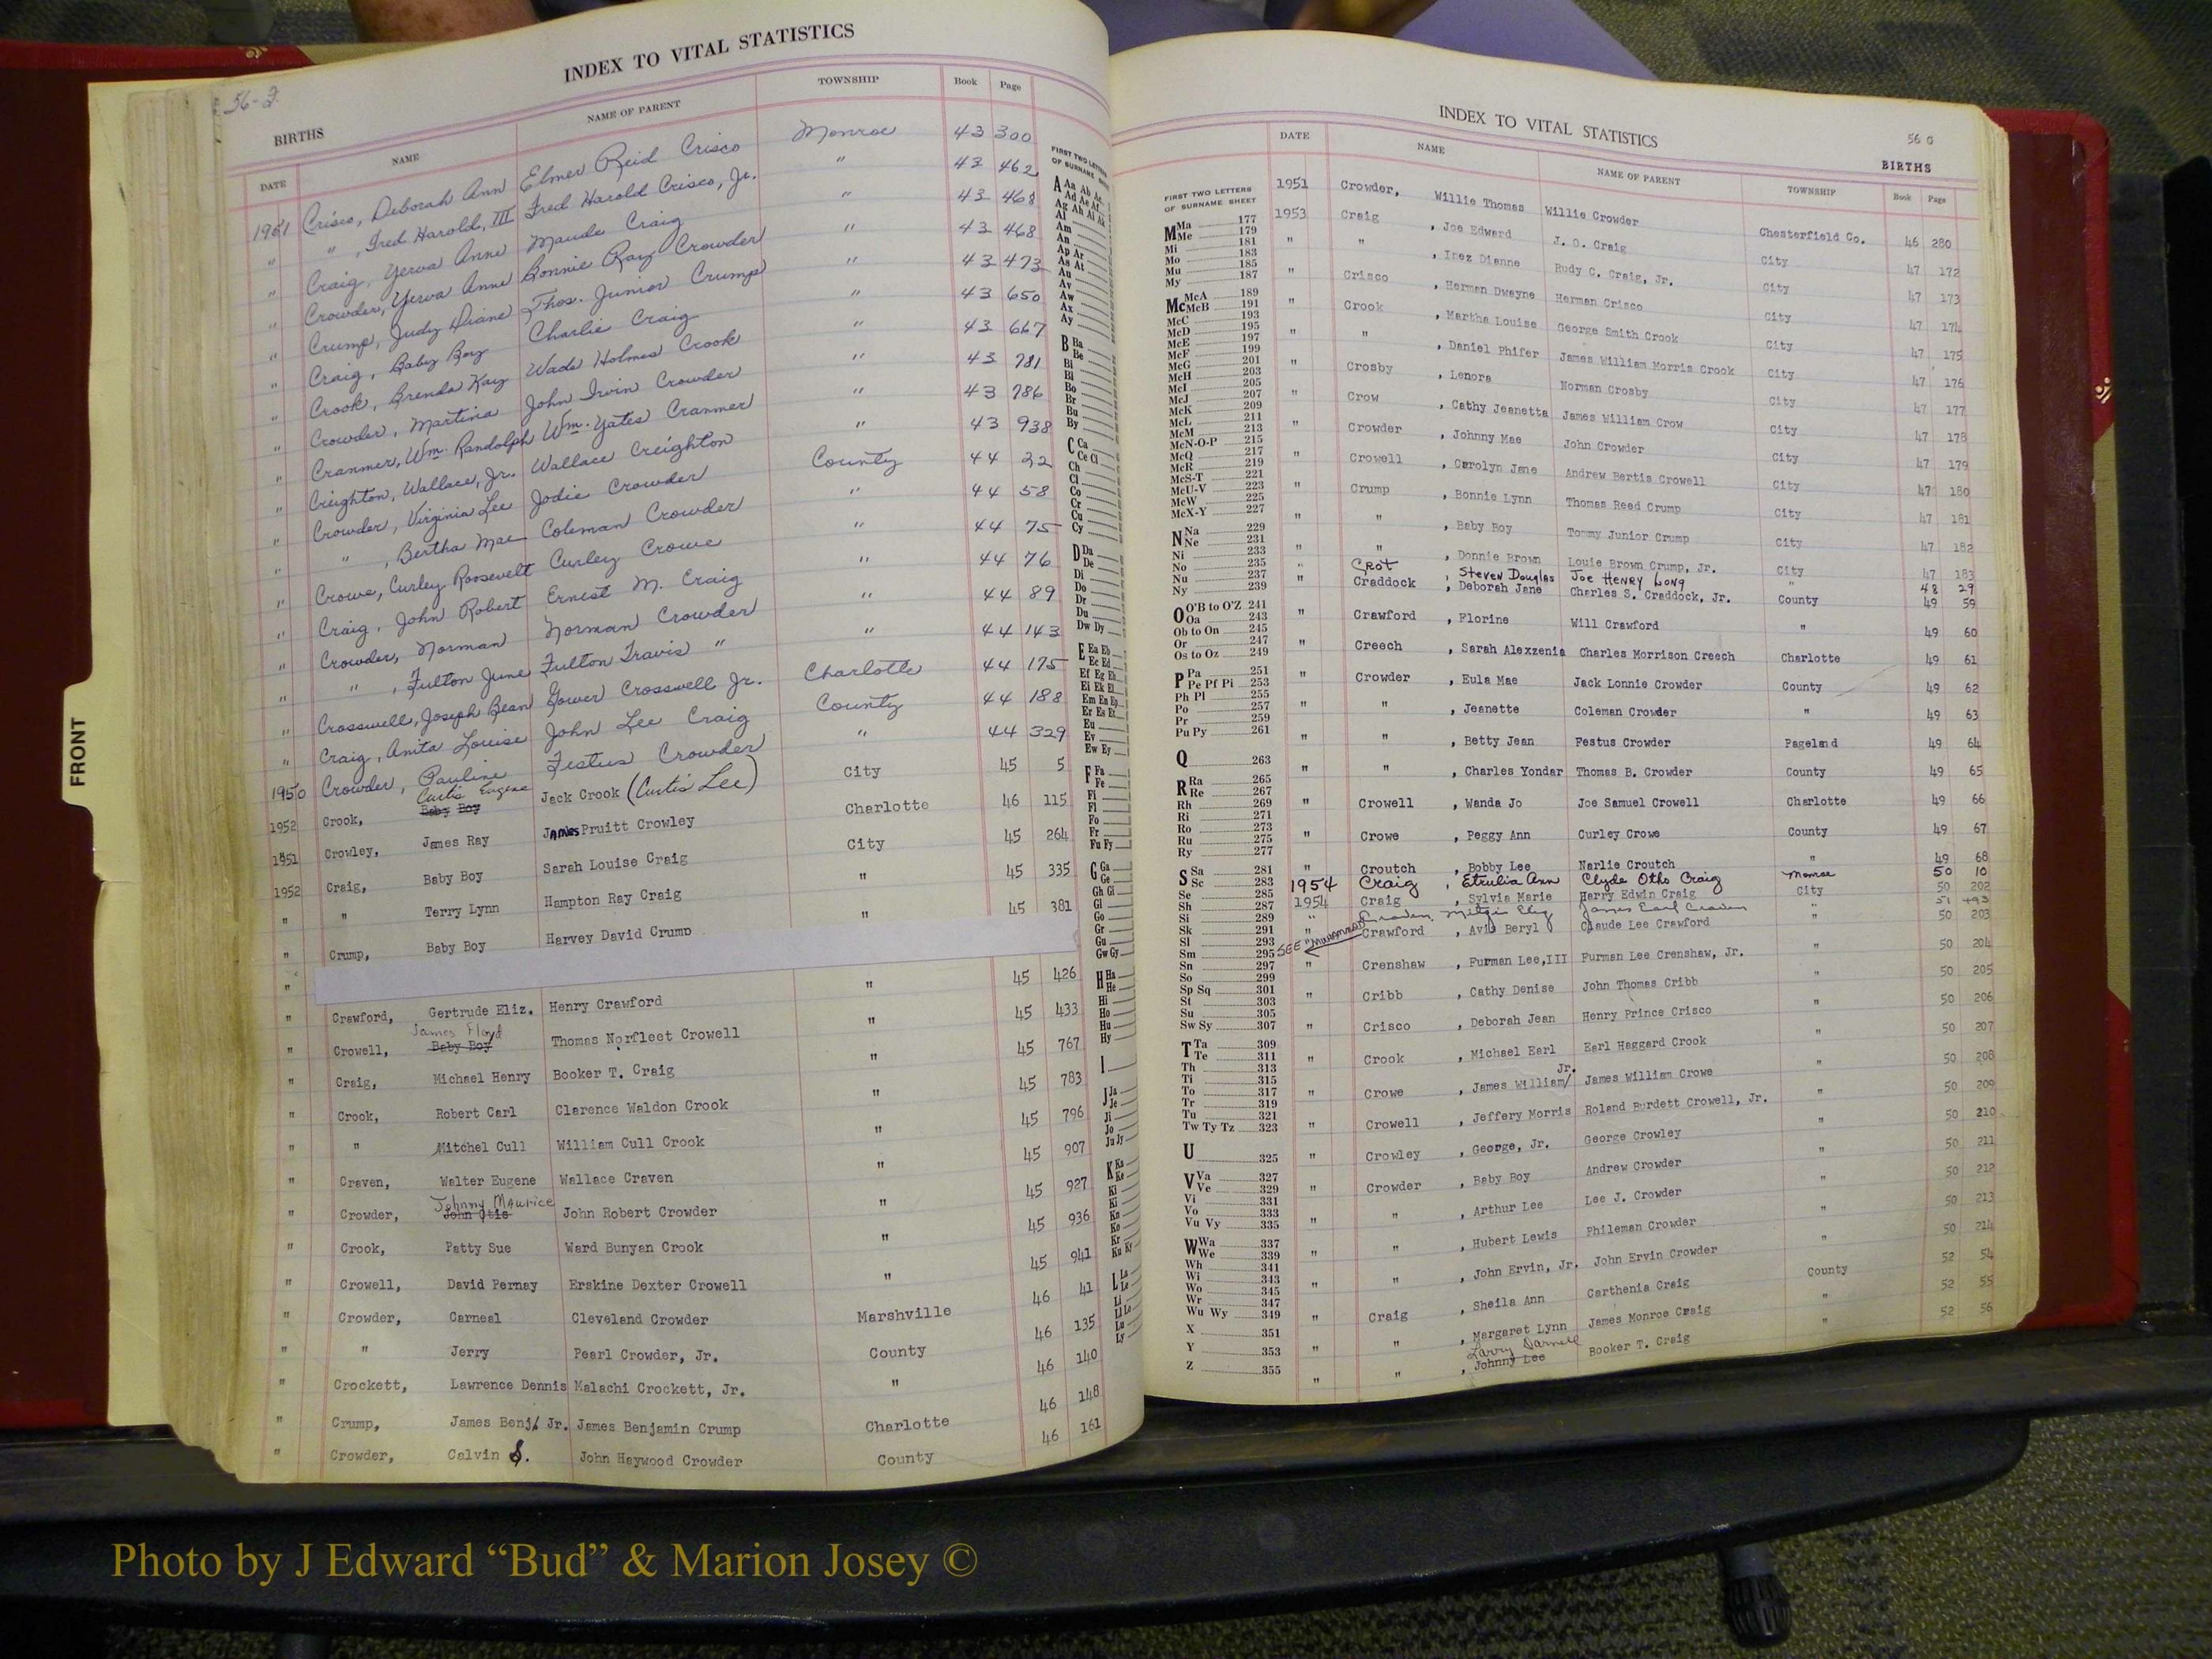 INDEX TO VITAL STATISTICS
BIRTHS
DATE NAME NAME OF PARENT TOWNSHIP Book Page
1951 Crisco, Deborah Ann Elmer Reid Crisco Monroe 43 300
" " , Fred Harold, III Fred Harold Crisco, Jr. " 43 462
" Craig, Yerva Anne Maude Craig " 43 468
" Crowder, Yerva Anne Bonnie Ray Crowder " 43 468
" Crump, Judy Diane Thos. Junior Crump " 43 473
" Craig, Baby Boy Charlie Craig " 43 650
" Crook, Brenda Kay Wade Holmes Crook " 43 667
" Crowder, Martina John Irvin Crowder " 43 781
" Cranmer, Wm. Randolph Wm. Yates Cranmer " 43 786
" Creighton, Wallace, Jr. Wallace Creighton " 43 938
" Crowder, Virginia Lee Jodie Crowder County 44 22
" " , Bertha Mae Coleman Crowder " 44 58
" Crowe, Curley Roosevelt Curley Crowe " 44 75
" Craig, John Robert Ernest M. Craig " 44 76
" Crowder, Norman Norman Crowder " 44 89
" " , Fulton June Fulton Travis " " 44 143
" Crosswell, Joseph Bean Gower Crosswell Jr. Charlotte 44 175
" Craig, Anita Louise John Lee Craig County 44 188
1950 Crowder, Pauline Festus Crowder " 44 329
1952 Crook, Curtis Eugene Baby Boy Jack Crook (Curtis Lee) City 45 5
1951 Crowley, James Ray James Pruitt Crowley Charlotte 46 115
1952 Craig, Baby Boy Sarah Louise Craig City 45 264
" " Terry Lynn Hampton Ray Craig " 45 335
" Crump, Baby Boy Harvey David Crump " 45 381
" Crawford, Gertrude Eliz. Henry Crawford " 45 426
" Crowell, James Floyd Baby Boy Thomas Norfleet Crowell " 45 433
" Craig, Michael Henry Booker T. Craig " 45 767
" Crook, Robert Carl Clarence Waldon Crook " 45 783
" " Mitchel Cull William Cull Crook " 45 796
" Craven, Walter Eugene Wallace Craven " 45 907
" Crowder, Johnny Maurice John Otis John Robert Crowder " 45 927
" Crook, Patty Sue Ward Bunyan Crook " 45 936
" Crowell, David Pernay Erskine Dexter Crowell " 45 941
" Crowder, Carneal Cleveland Crowder Marshville 46 41
" " Jerry Pearl Crowder, Jr. County 46 135
" Crockett, Lawrence Dennis Malachi Crockett, Jr. " 46 140
" Crump, James Benj. Jr. James Benjamin Crump Charlotte 46 148
" Crowder, Calvin S. John Haywood Crowder County 46 161
FRONT
FIRST TWO LETTERS
OF SURNAME
A Aa Ab
B Ba
Be
Bi
Bl
Bo
Br
Bu
By
C Ca
Ce Ci
Ch
Cl
Co
Cr
Cu
Cy
D Da
De
Di
Do
Dr
Du
Dw Dy
INDEX TO VITAL STATISTICS
56 G
BIRTHS
DATE NAME NAME OF PARENT TOWNSHIP Book Page
1951 Crowder, Willie Thomas Willie Crowder Chesterfield Co. 46 280
1953 Craig , Joe Edward J. O. Craig City 47 172
" " , Inez Dianne Rudy C. Craig, Jr. City 47 173
" Crisco , Herman Dwayne Herman Crisco City 47 174
" Crook , Martha Louise George Smith Crook City 47 175
" " , Daniel Phifer James William Morris Crook City 47 176
" Crosby , Lenora Norman Crosby City 47 177
" Crow , Cathy Jeanetta James William Crow City 47 178
" Crowder , Johnny Mae John Crowder City 47 179
" Crowell , Carolyn Jane Andrew Bertis Crowell City 47 180
" Crump , Bonnie Lynn Thomas Reed Crump City 47 181
" " , Baby Boy Tommy Junior Crump City 47 182
" " , Donnie Brown Louie Brown Crump, Jr. City 47 183
" Crot , Steven Douglas Joe Henry Long " 48 29
" Craddock , Deborah Jane Charles S. Craddock, Jr. County 49 59
" Crawford , Florine Will Crawford " 49 60
" Creech , Sarah Alexzenia Charles Morrison Creech Charlotte 49 61
" Crowder , Eula Mae Jack Lonnie Crowder County 49 62
" " , Jeanette Coleman Crowder " 49 63
" " , Betty Jean Festus Crowder Pageland 49 64
" " , Charles Yondar Thomas B. Crowder County 49 65
" Crowell , Wanda Jo Joe Samuel Crowell Charlotte 49 66
" Crowe , Peggy Ann Curley Crowe County 49 67
" Croutch , Bobby Lee Narlie Croutch " 49 68
1954 Craig , Etrulia Ann Clyde Otho Craig Monroe 50 10
1954 Craig , Sylvia Marie Harry Edwin Craig City 50 202
" Craven, Mitzi Eliz James Earl Craven " 51 493
" Crawford , Avis Beryl Claude Lee Crawford " 50 203
SEE
" Crenshaw , Furman Lee,III Furman Lee Crenshaw, Jr. " 50 204
" Cribb , Cathy Denise John Thomas Cribb " 50 205
" Crisco , Deborah Jean Henry Prince Crisco " 50 206
" Crook , Michael Earl Earl Haggard Crook " 50 207
" Crowe , James William/ Jr. James William Crowe " 50 208
" Crowell , Jeffery Morris Roland Burdett Crowell, Jr. " 50 209
" Crowley , George, Jr. George Crowley " 50 210
" Crowder , Baby Boy Andrew Crowder " 50 211
" " , Arthur Lee Lee J. Crowder " 50 212
" " , Hubert Lewis Phileman Crowder " 50 213
" " , John Ervin, Jr. John Ervin Crowder " 50 214
" Craig , Sheila Ann Carthenia Craig County 52 54
" " , Margaret Lynn James Monroe Craig " 52 55
" " , Larry Darnell Johnny Lee Booker T. Craig " 52 56
FIRST TWO LETTERS
OF SURNAME SHEET
M Ma 177
Me 179
Mi 181
Mo 183
Mu 185
My 187
Mc McA 189
McB 191
McC 193
McD 195
McE 197
McF 199
McG 201
McH 203
McI 205
McJ 207
McK 209
McL 211
McM 213
McN-O-P 215
McQ 217
McR 219
McS-T 221
McU-V 223
McW 225
McX-Y 227
N Na 229
Ne 231
Ni 233
No 235
Nu 237
Ny 239
O O'B to O'Z 241
Oa 243
Ob to On 245
Or 247
Os to Oz 249
P Pa 251
Pe Pf Pi 253
Ph Pl 255
Po 257
Pr 259
Pu Py 261
Q 263
R Ra 265
Re 267
Rh 269
Ri 271
Ro 273
Ru 275
Ry 277
S Sa 281
Sc 283
Se 285
Sh 287
Si 289
Sk 291
Sl 293
Sm 295
Sn 297
So 299
Sp Sq 301
St 303
Su 305
Sw Sy 307
T Ta 309
Te 311
Th 313
Ti 315
To 317
Tr 319
Tu 321
Tw Ty Tz 323
U 325
V Va 327
Ve 329
Vi 331
Vo 333
Vu Vy 335
W Wa 337
We 339
Wh 341
Wi 343
Wo 345
Wr 347
Wu Wy 349
X 351
Y 353
Z 355
Photo by J Edward “Bud” & Marion Josey ©